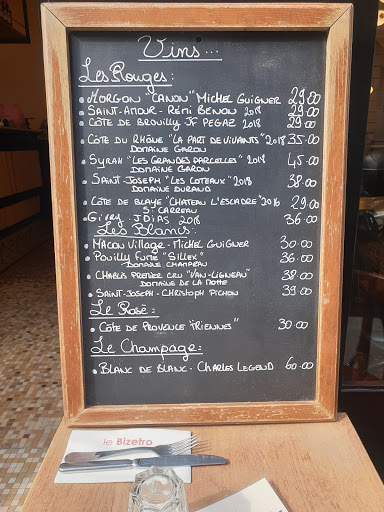 Vins...
Les Rouges:
• Morgon "Canon" Michel Guigner 29.00
Saint-Amour - Rémi Benon 2018 29.00
• Côte de Brouilly JF Pegaz 2018 29.00
• Côte du Rhône "La Part de Vivants" 2018 35.00
Domaine Garon
• Syrah "Les Grandes Parcelles" 2018 45.00
Domaine Garon
• Saint-Joseph "Les Coteaux" 2018 38.00
Domaine Durand
• Côte de Blaye "Chateau L'Escadre" 2016
St Carreau
• Givry - J Dias 2018 36.00
Les Blancs:
• Macon Village - Michel Guigner 30.00
• Pouilly Fumé "Sillex" 36.00
Domaine Champeau
• Chablis Premier Cru "Van-Ligneau" 38.00
Domaine de la Motte
• Saint-Joseph - Christoph Pichon 39.00
Le Rosé:
• Côte de Provence "Triennes" 30.00
Le Champage:
• Blanc de Blanc - Charles Legend 60.00
le Bizetro